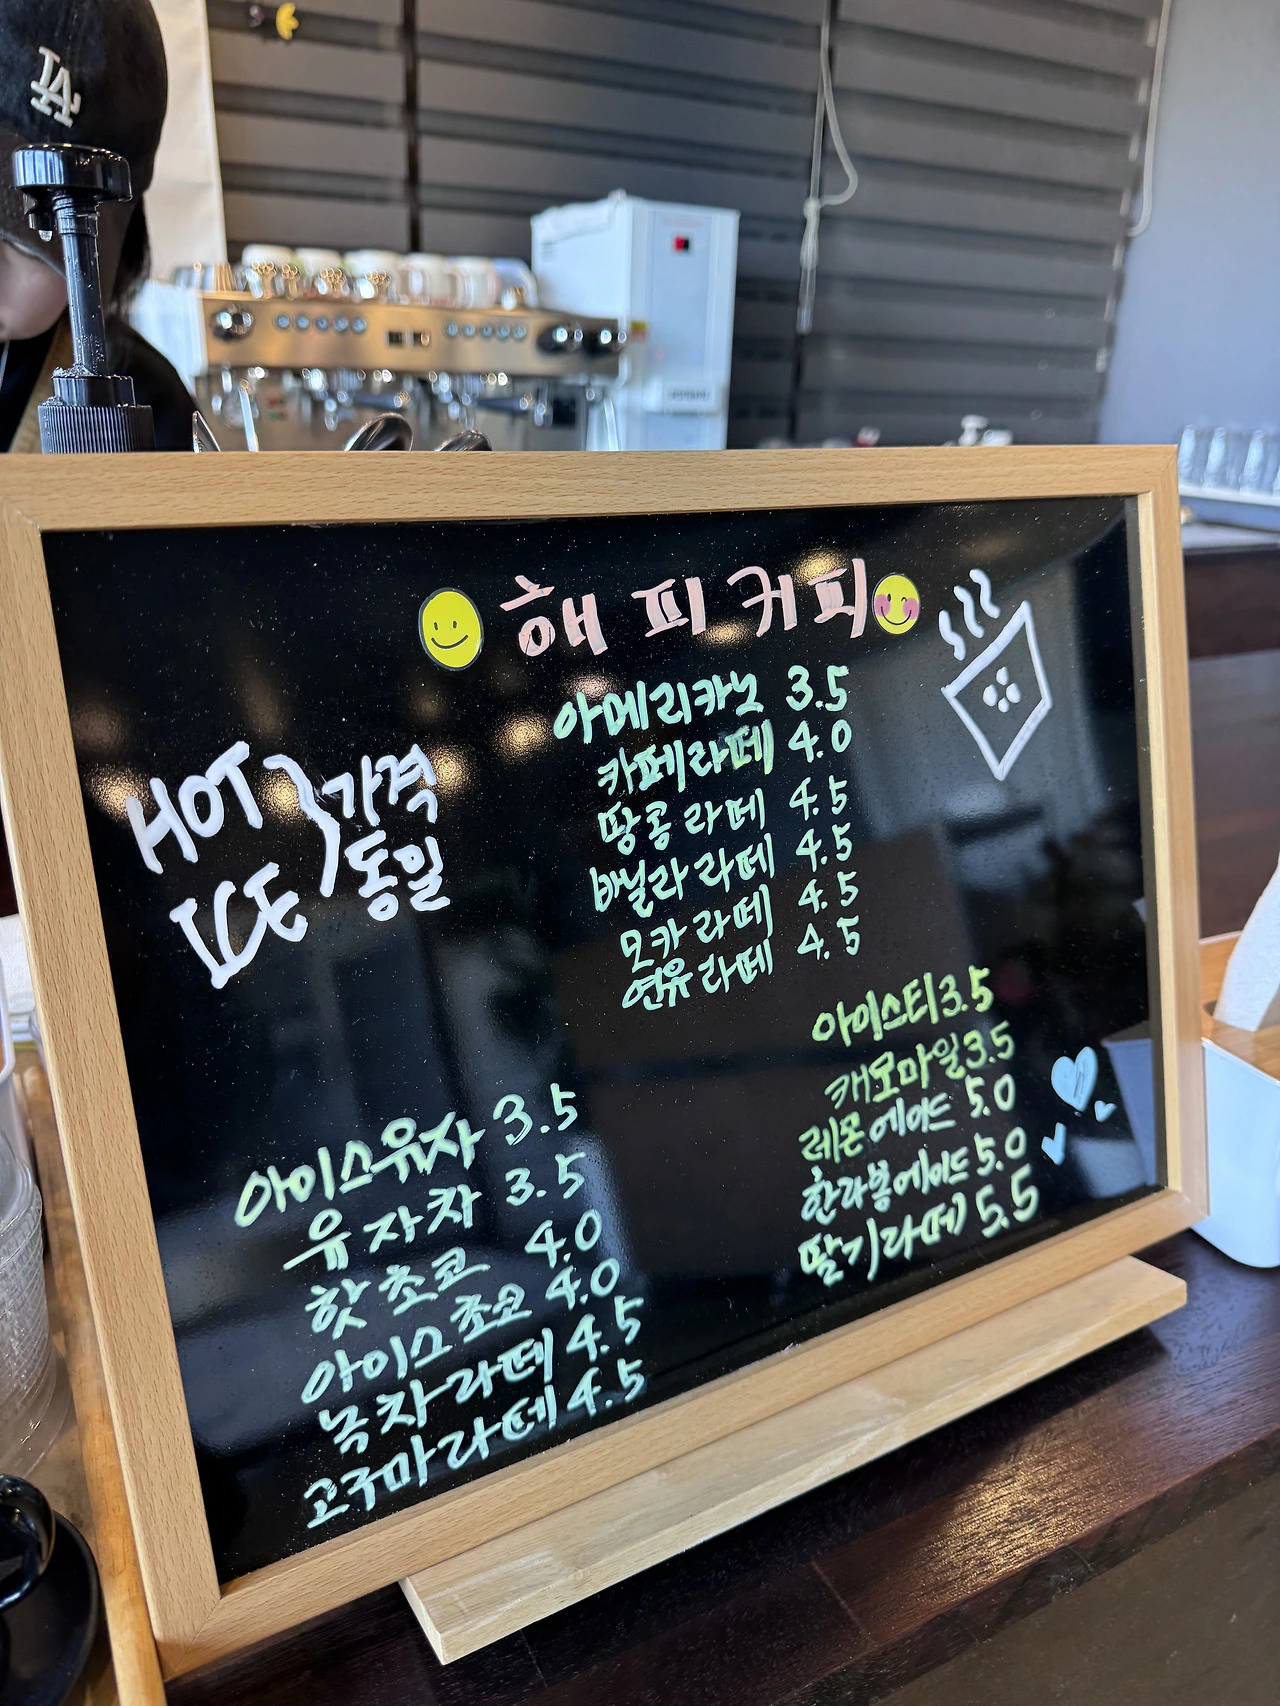 LA
해피커피
아메리카노 3.5
카페라떼 4.0
땅콩라떼 4.5
바닐라라떼 4.5
모카라떼 4.5
연유라떼 4.5
HOT
ICE
가격
동일
아이스티 3.5
캐모마일 3.5
레몬에이드 5.0
한라봉에이드 5.0
딸기라떼 5.5
아이스유자 3.5
유자차 3.5
핫초코 4.0
아이스초코 4.0
녹차라떼 4.5
고구마라떼 4.5